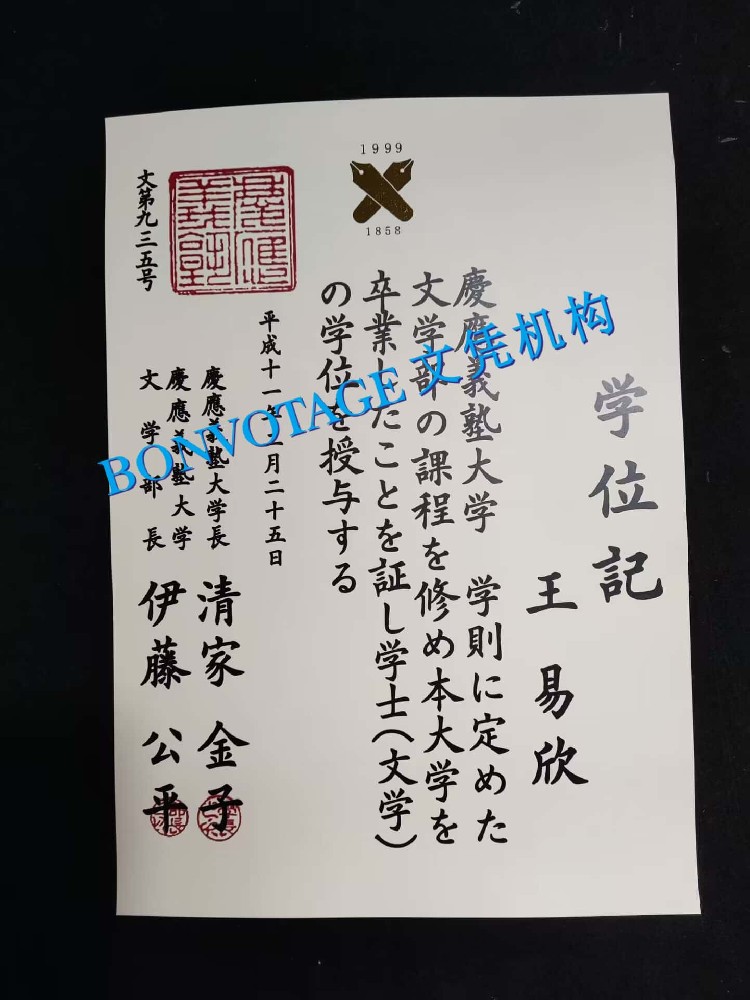 学位記
王 易 欣
慶應義塾大学 学則に定めた
文学部の課程を修め本大学を
卒業したことを証し学士(文学)
の学位を授与する
平成十一年 月二十五日
慶應義塾大学長 清家 金子
慶應義塾大学
文 学 部 長 伊藤 公平
文第九三五号
1999
1858
BONVOTAGE 文凭机构